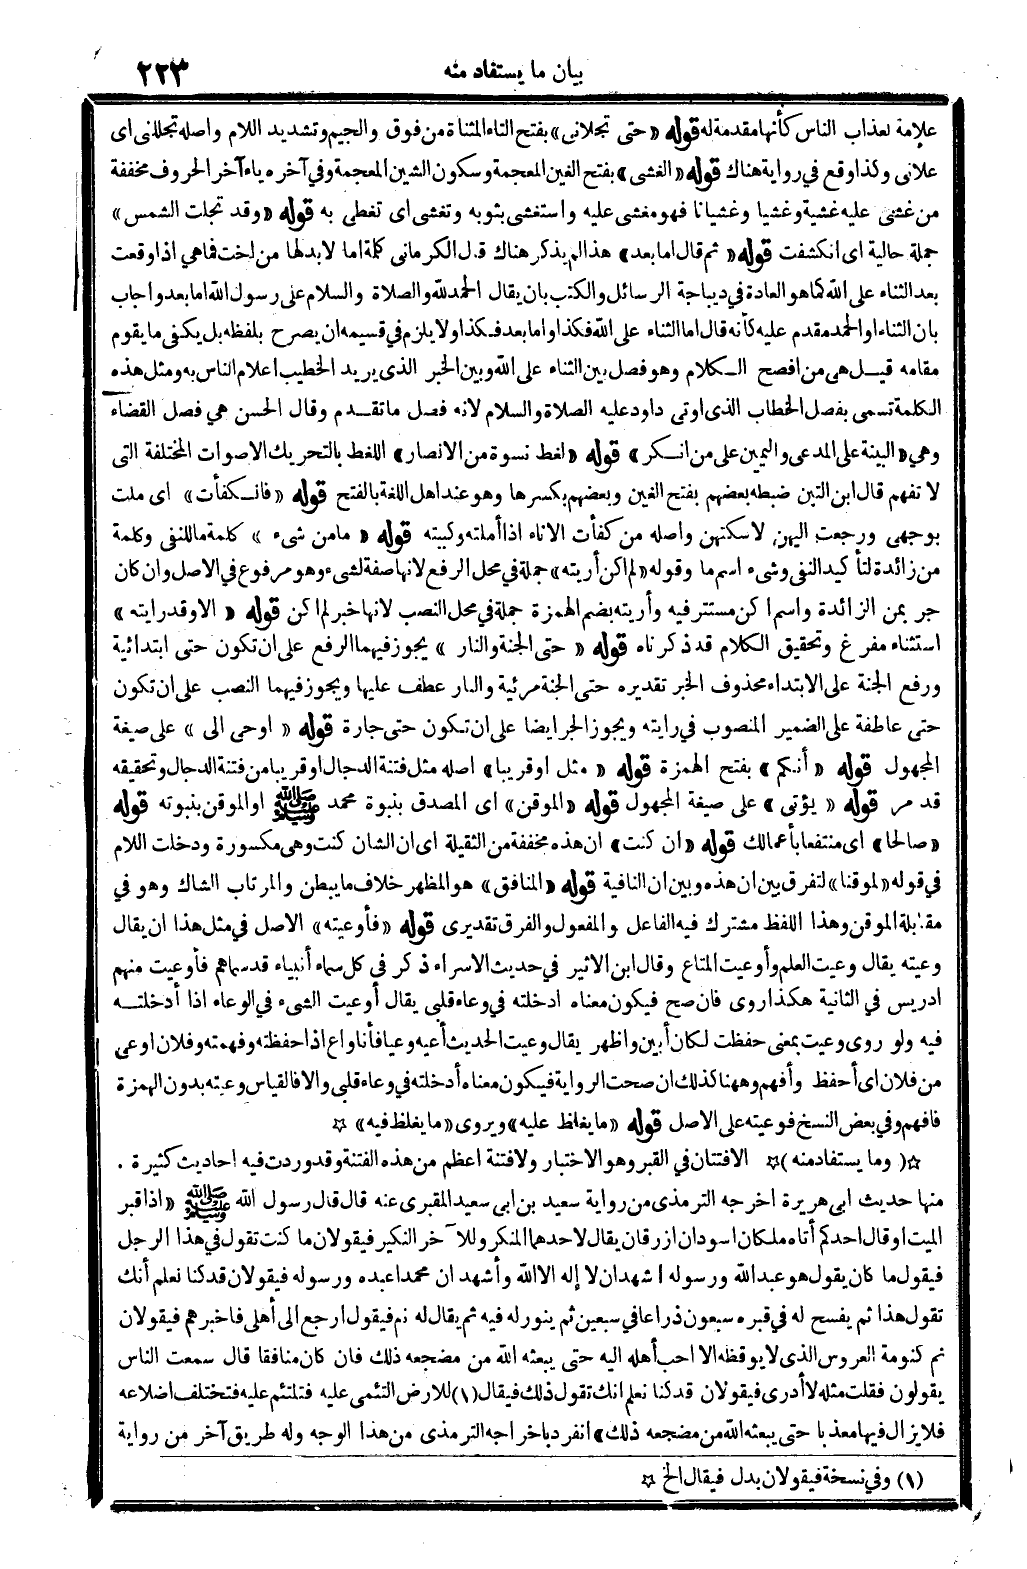 بيان ما يستفاد منه
٢٢٣
علامة لعذاب الناس كأنها مقدمة له قوله «حتى تجلانى» بفتح التاء المثناة من فوق والجيم وتشديد اللام وأصله تجللنى اى
علانى وكذا وقع في رواية هناك قوله «الغشى» بفتح الغين المعجمة وسكون الشين المعجمة وفي آخره ياء آخر الحروف مخففة
من غشى عليه غشية وغشيا وغشيانا فهو مغشى عليه واستغشى بثوبه وتغشى اى تغطى به قوله «وقد تجلت الشمس»
جملة حالية اى انكشفت قوله «ثم قال اما بعد» هذا لم يذكر هناك قال الكرمانى كلمة اما لا بد لها من اخت فما هي اذا وقعت
بعد الثناء على الله كما هو العادة في ديباجة الرسائل والكتب بان يقال الحمد لله والصلاة والسلام على رسول الله اما بعد واجاب
بان الثناء او الحمد مقدم عليه كأنه قال اما الثناء على الله فكذا واما بعد فكذا ولا يلزم في قسيمه ان يصرح بلفظه بل يكفى ما يقوم
مقامه قيل هى من افصح الكلام وهو فصل بين الثناء على الله وبين الخبر الذى يريد الخطيب اعلام الناس به ومثل هذه
الكلمة تسمى بفصل الخطاب الذى اوتى داود عليه الصلاة والسلام لانه فصل ما تقدم وقال الحسن هي فصل القضاء
وهي «البينة على المدعى واليمين على من انكر» قوله «لغط نسوة من الانصار» اللغط بالتحريك الاصوات المختلفة التى
لا تفهم قال ابن التين ضبطه بعضهم بفتح الغين وبعضهم بكسرها وهو عند اهل اللغة بالفتح قوله «فانكفأت» اى ملت
بوجهى ورجعت اليهن لاسكتهن واصله من كفأت الاناء اذا أملته وكببته قوله «ما من شىء» كلمة ما للنفى وكلمة
من زائدة لتأكيد النفى وشىء اسم ما وقوله «لم اكن أريته» جملة في محل الرفع لانها صفة لشىء وهو مرفوع في الاصل وان كان
جر بمن الزائدة واسم اكن مستتر فيه وأريته بضم الهمزة جملة في محل النصب لانها خبر لم اكن قوله «الا وقد رايته»
استثناء مفرغ وتحقيق الكلام قد ذكرناه قوله «حتى الجنة والنار» يجوز فيهما الرفع على ان تكون حتى ابتدائية
ورفع الجنة على الابتداء محذوف الخبر تقديره حتى الجنة مرئية والنار عطف عليها ويجوز فيهما النصب على ان تكون
حتى عاطفة على الضمير المنصوب في رايته ويجوز الجر ايضا على ان تكون حتى جارة قوله «اوحى الى» على صيغة
المجهول قوله «أنكم» بفتح الهمزة قوله «مثل او قريبا» اصله مثل فتنة الدجال او قريبا من فتنة الدجال وتحقيقه
قد مر قوله «يؤتى» على صيغة المجهول قوله «الموقن» اى المصدق بنبوة محمد ﷺ او الموقن بنبوته قوله
«صالحا» اى منتفعا بأعمالك قوله «ان كنت» ان هذه مخففة من الثقيلة اى ان الشان كنت وهى مكسورة ودخلت اللام
في قوله «لموقنا» لتفرق بين ان هذه وبين ان النافية قوله «المنافق» هو المظهر خلاف ما يبطن والمرتاب الشاك وهو في
مقابلة الموقن وهذا اللفظ مشترك فيه الفاعل والمفعول والفرق تقديرى قوله «فأوعيته» الاصل في مثل هذا ان يقال
وعيته يقال وعيت العلم وأوعيت المتاع وقال ابن الاثير في حديث الاسراء ذكر فى كل سماء أنبياء قد سماهم فأوعيت منهم
ادريس في الثانية هكذا روى فان صح فيكون معناه ادخلته في وعاء قلبى يقال أوعيت الشىء في الوعاء اذا أدخلته
فيه ولو روى وعيت بمعنى حفظت لكان أبين واظهر يقال وعيت الحديث أعيه وعيا فأنا واع اذا حفظته وفهمته وفلان اوعى
من فلان اى أحفظ وأفهم وههنا كذلك ان صحت الرواية فيكون معناه أدخلته في وعاء قلبى والا فالقياس وعيته بدون الهمزة
فافهم وفي بعض النسخ فوعيته على الاصل قوله «ما يغلظ عليه» ويروى «ما يغلظ فيه» ☆
☆(وما يستفاد منه)☆ الافتتان في القبر وهو الاختبار ولا فتنة اعظم من هذه الفتنة وقد وردت فيه احاديث كثيرة .
منها حديث ابى هريرة اخرجه الترمذى من رواية سعيد بن ابى سعيد المقبرى عنه قال قال رسول الله ﷺ «اذا قبر
الميت او قال احدكم أتاه ملكان اسودان ازرقان يقال لاحدهما المنكر وللآخر النكير فيقولان ما كنت تقول في هذا الرجل
فيقول ما كان يقول هو عبد الله ورسوله اشهد ان لا إله الا الله وأشهد ان محمدا عبده ورسوله فيقولان قد كنا نعلم أنك
تقول هذا ثم يفسح له في قبره سبعون ذراعا في سبعين ثم ينور له فيه ثم يقال له نم فيقول ارجع الى أهلى فاخبرهم فيقولان
نم كنومة العروس الذى لا يوقظه الا احب أهله اليه حتى يبعثه الله من مضجعه ذلك فان كان منافقا قال سمعت الناس
يقولون فقلت مثله لا أدرى فيقولان قد كنا نعلم انك تقول ذلك فيقال (١) للارض التئمى عليه فتلتئم عليه فتختلف اضلاعه
فلا يزال فيها معذبا حتى يبعثه الله من مضجعه ذلك» انفرد باخراجه الترمذى من هذا الوجه وله طريق آخر من رواية
(١) وفي نسخة فيقولان بدل فيقال الخ ☆